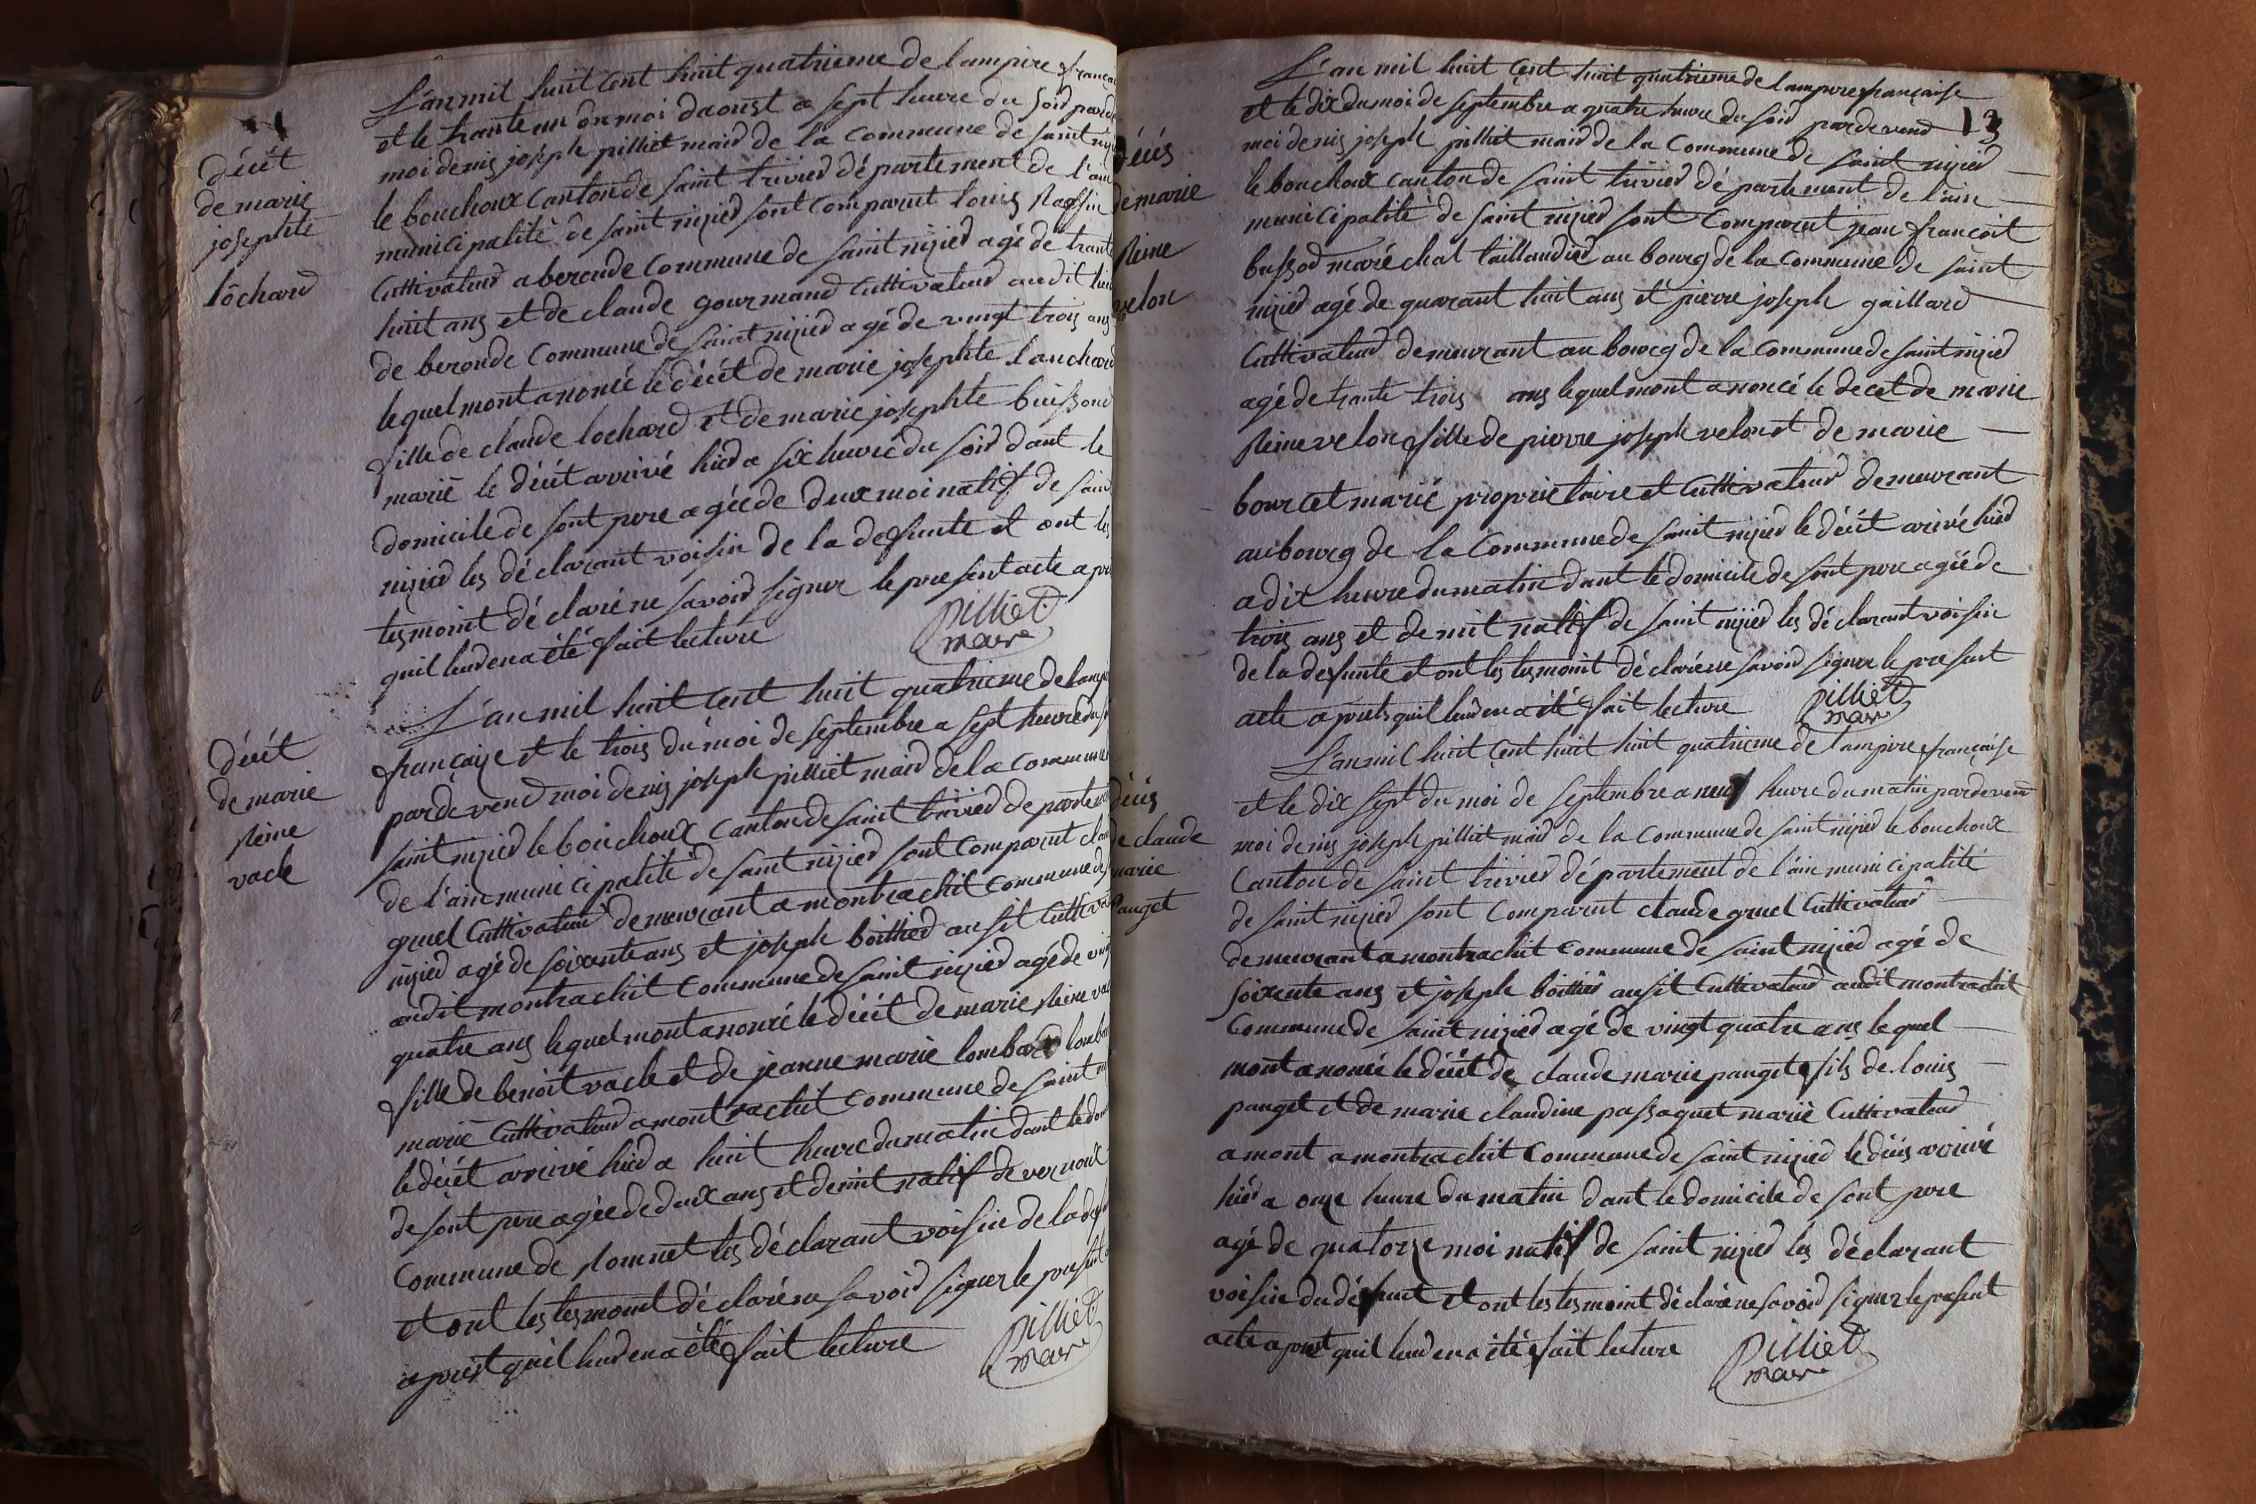 décét
de marie
josephte
lôchard
L'an mil huit cent huit quatrieme de lampire françai
et le trante un du moi daoust a sept heure du soir parde
moi denis joseph pilliet maire de la commune de saint nizi
le bouchoux canton de saint trivier département de l'ain
municipalité de saint nizier sont comparut louis Raffin
Cultivateur a beronde commune de saint nizier agé de trante
huit ans et de claude gourmand cultivateur audit lieu
de beronde commune de saint nizier agé de vingt trois ans
lequel mont anoncé le décét de marie josephte lauchard
fille de claude lochard et de marie josephte buisson
marié le décét arrivé hier a six heure du soir dant le
domicile de sont pere agée de deux moi natif de sain
nizier les déclarant voisin de la defunte et ont les
tesmoint déclaré ne savoir signer le present acte a pr
quil leur en a été fait lecture
pilliet
maire
décét
de marie
Reine
vacle
L'an mil huit cent huit quatrieme de lampi
française et le trois du moi de septembre a sept heure du
par devend moi denis joseph pilliet maire de la commune
saint nizier le bouchoux canton de saint trivier departe
de l'ain municipalité de saint nizier sont comparut clau
gruel cultivateur demeurant a montrachit commune de
nizier agé de soixante ans et joseph boittier ausit cultiva
audit montrachit commune de saint nizier agé de vin
quatre ans lequel mont anoncé le décét de marie Reine va
fille de benoit vacle et de jeanne marie lombard lomba
marié cultivateur a montrachit commune de saint
le décét arrivé hier a huit heure du matin dant le do
de sont pere agée de deux ans et demit natif de vernoux
commune de Romnet les déclarant voisin de la def
et ont les tesmoint déclaré ne savoir signer le present
aprest quil leur en a été fait lecture
pilliet
maire
13
décés
de marie
Reine
velon
L'an mil huit cent huit quatrieme de lampire française
et le dix du moi de septembre a quatre heure du soir par devend
moi denis joseph pilliet maire de la commune de saint nizier
le bouchoux canton de saint trivier département de l'ain
municipalité de saint nizier sont comparut jean françoit
bussod maréchal taillandier au bourg de la commune de saint
nizier agé de quarant huit ans et pierre joseph gaillard
Cultivateur demeurant au bourg de la commune de saint nizier
agé de trante trois ans lequel mont anoncé le decet de marie
Reine velon fille de pierre joseph velon et de marie
bourcet marié proprietaire et cultivateur demeurant
au bourg de la commune de saint nizier le décét arivé hier
a dit heure du matin dant le domicile de sont pere agée de
trois ans et demit natif de saint nizier les déclarant voisin
de la defunte et ont les tesmoint déclaré ne savoir signer le present
acte a preds quil leur en a été fait lecture
pilliet
maire
décés
de claude
marie
pauget
L'an mil huit cent huit huit quatrieme de lampire française
et le dix sept du moi de septembre a neuf heure du matin par devend
moi denis joseph pilliet maire de la commune de saint nizier le bouchoux
Canton de saint trivier département de l'ain municipalité
de saint nizier sont comparut claude gruel cultivateur
demeurant a montrachit commune de saint nizier agé de
soixente ans et joseph boittier ausit cultivateur audit montrachit
Commune de saint nizier agé de vingt quatre ans lequel
mont anoncé le décét de claude marie pauget fils de louis
pauget et de marie claudine passaquet marié cultivateur
a mont a montrachit commune de saint nizier le décés arrivé
hier a onze heure du matin dant le domicile de sont pere
agé de quatorze moi natif de saint nizier les déclarant
voisin du défunt et ont les tesmoint déclaré ne savoir signer le present
acte aprest quil leur en a été fait lecture
pilliet
maire